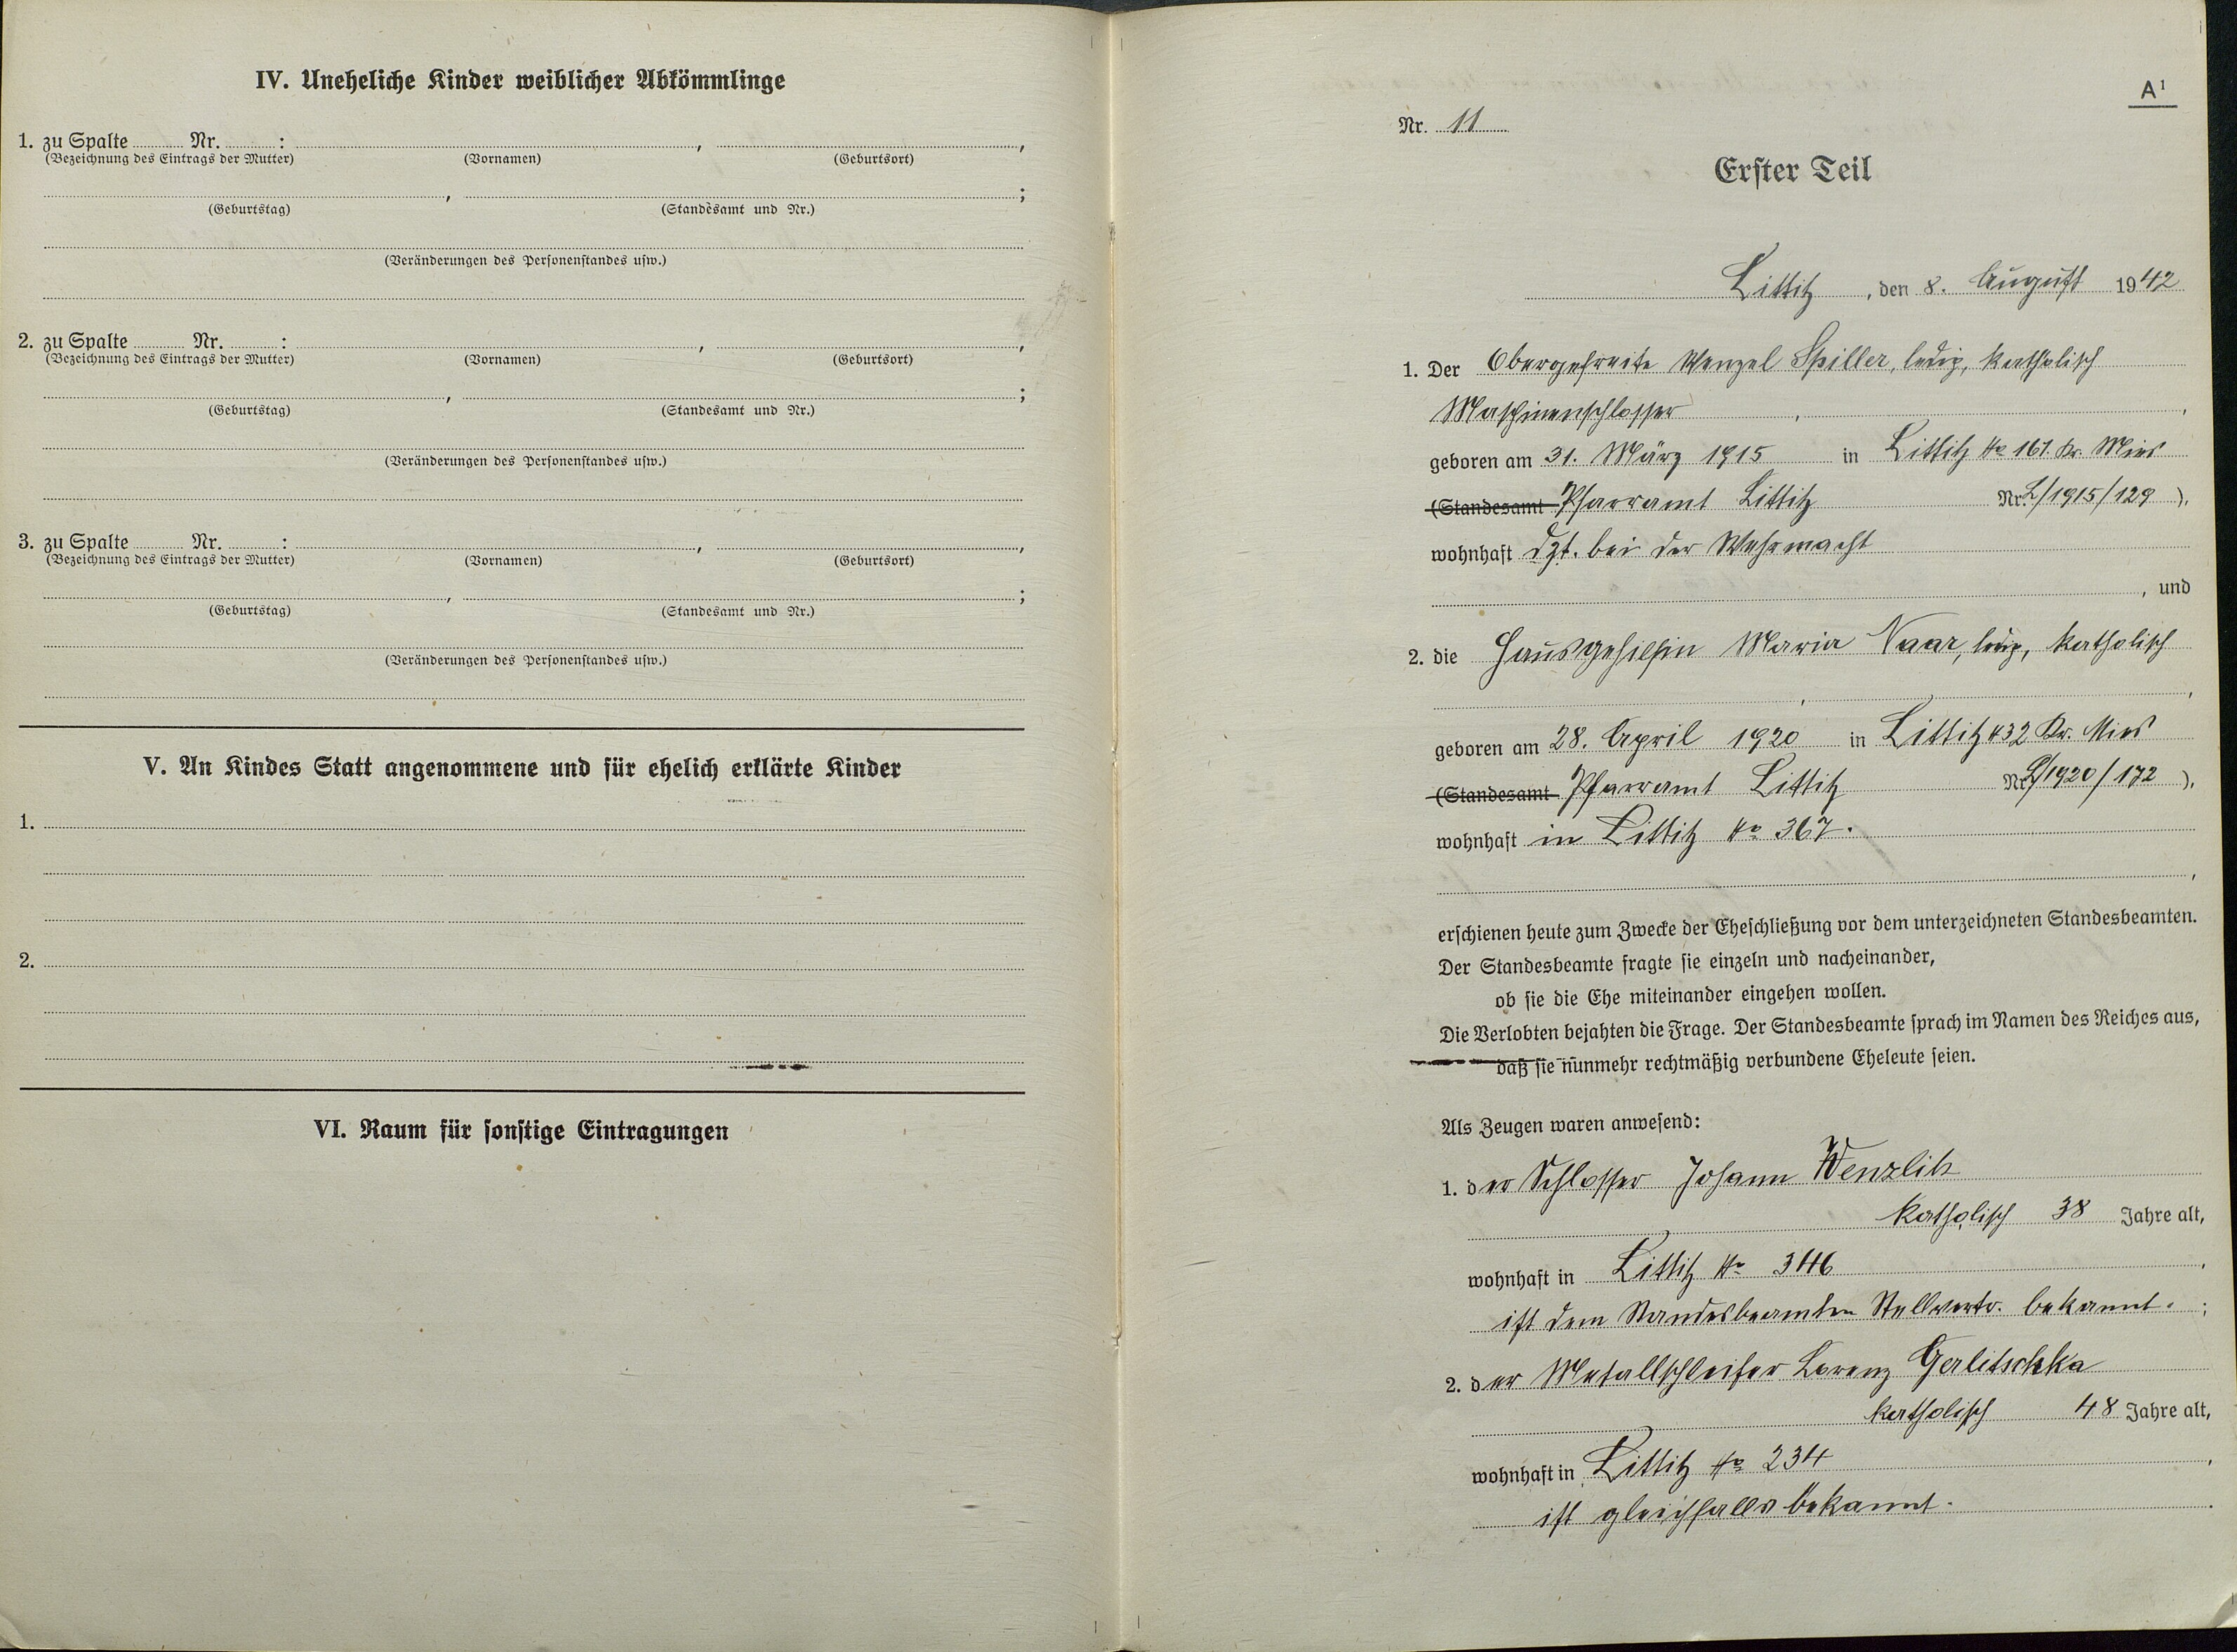 IV. Uneheliche Kinder weiblicher Abkömmlinge
1. zu Spalte Nr. : , ,
(Bezeichnung des Eintrags der Mutter) (Vornamen) (Geburtsort)
, ;
(Geburtstag) (Standesamt und Nr.)
(Veränderungen des Personenstandes usw.)
2. zu Spalte Nr. : , ,
(Bezeichnung des Eintrags der Mutter) (Vornamen) (Geburtsort)
, ;
(Geburtstag) (Standesamt und Nr.)
(Veränderungen des Personenstandes usw.)
3. zu Spalte Nr. : , ,
(Bezeichnung des Eintrags der Mutter) (Vornamen) (Geburtsort)
, ;
(Geburtstag) (Standesamt und Nr.)
(Veränderungen des Personenstandes usw.)
V. An Kindes Statt angenommene und für ehelich erklärte Kinder
1.
2.
VI. Raum für sonstige Eintragungen
A¹
Nr. 11
Erster Teil
Littitz, den 8. August 1942
1. Der Obergefreite Wenzel Spiller, ledig, katholisch
Maschinenschlosser , ,
geboren am 31. März 1915 in Littitz No 167. Kr. Mies
(Standesamt Pfarramt Littitz Nr. L/1915/129 ),
wohnhaft dzt. bei der Wehrmacht
, und
2. die Hausgehilfin Maria Naar, ledig, katholisch
, ,
geboren am 28. April 1920 in Littitz 432 Kr. Mies
(Standesamt Pfarramt Littitz Nr. /1920/172 ),
wohnhaft in Littitz No 367.
,
erschienen heute zum Zwecke der Eheschließung vor dem unterzeichneten Standesbeamten.
Der Standesbeamte fragte sie einzeln und nacheinander,
ob sie die Ehe miteinander eingehen wollen.
Die Verlobten bejahten die Frage. Der Standesbeamte sprach im Namen des Reiches aus,
daß sie nunmehr rechtmäßig verbundene Eheleute seien.
Als Zeugen waren anwesend:
1. der Schlosser Johann Wenzlik
katholisch 38 Jahre alt,
wohnhaft in Littitz No 346 ,
ist dem Standesbeamten Stellvertr. bekannt. ;
2. der Metallschleifer Lorenz Gerlitschka
katholisch 48 Jahre alt,
wohnhaft in Littitz No 234 ,
ist gleichfalls bekannt. .